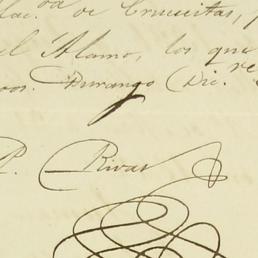 de Crucecitas,
el Álamo, los que
Durango Dic.re
P. Rivas